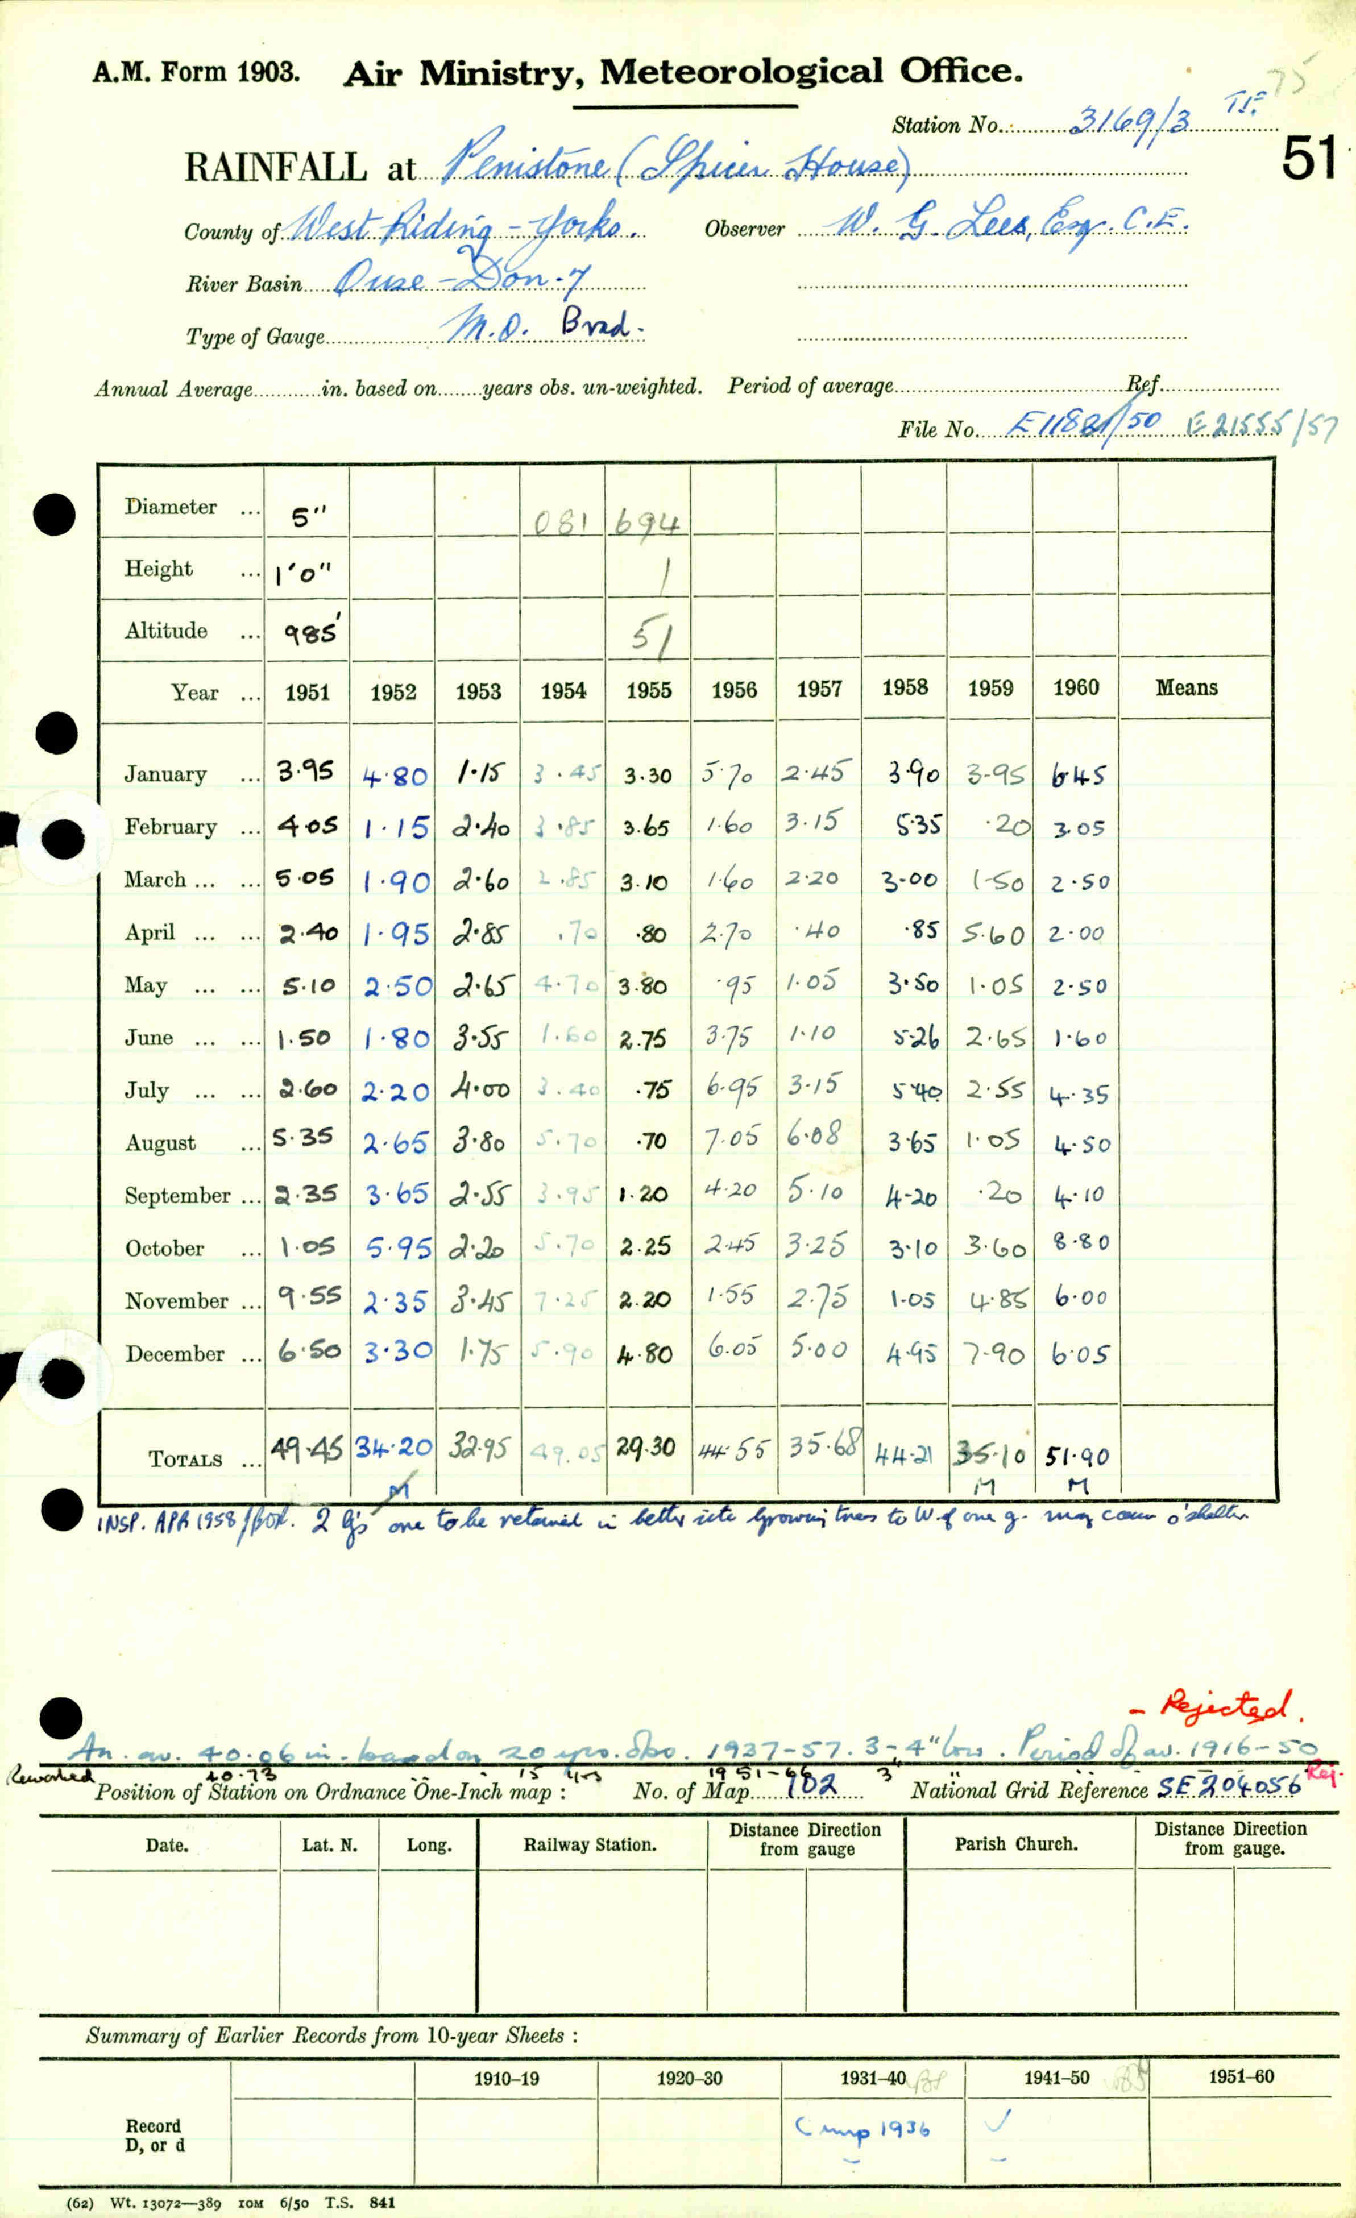 75
A.M. Form 1903. Air Ministry, Meteorological Office.
Station No. 3169/3
51
RAINFALL at Penistone (Spicer House)
County of West Riding - Yorks. Observer W. G. Lees, Esq. C.E.
River Basin Ouse - Don - 7
Type of Gauge M.O. Brad.
Annual Average in. based on years obs. un-weighted. Period of average Ref.
File No. E11881/50 E 21555/57
Diameter ... 5" 081 694
Height ... 1'0" 1
Altitude ... 985' 51
Year ... 1951 1952 1953 1954 1955 1956 1957 1958 1959 1960 Means
January ... 3.95 4.80 1.15 3.45 3.30 5.70 2.45 3.90 3.95 6.45
February ... 4.05 1.15 2.40 3.85 3.65 1.60 3.15 5.35 .20 3.05
March ... ... 5.05 1.90 2.60 2.85 3.10 1.60 2.20 3.00 1.50 2.50
April ... ... 2.40 1.95 2.85 .70 .80 2.70 .40 .85 5.60 2.00
May ... ... 5.10 2.50 2.65 4.70 3.80 .95 1.05 3.50 1.05 2.50
June ... ... 1.50 1.80 3.55 1.60 2.75 3.75 1.10 5.26 2.65 1.60
July ... ... 2.60 2.20 4.00 3.40 .75 6.95 3.15 5.40 2.55 4.35
August ... 5.35 2.65 3.80 5.70 .70 7.05 6.08 3.65 1.05 4.50
September ... 2.35 3.65 2.55 3.95 1.20 4.20 5.10 4.20 .20 4.10
October ... 1.05 5.95 2.20 5.70 2.25 2.45 3.25 3.10 3.60 8.80
November ... 9.55 2.35 3.45 7.25 2.20 1.55 2.75 1.05 4.85 6.00
December ... 6.50 3.30 1.75 5.90 4.80 6.05 5.00 4.95 7.90 6.05
TOTALS ... 49.45 34.20 32.95 49.05 29.30 44.55 35.68 44.21 35.10 51.90
M M M
INSP. APR 1958 2 g's one to be retained in better site Growing trees to W of one g. may cause o'shelter
- Rejected.
An. av. 40.06 in. based on 20 yrs. obs. 1937-57. 3-4" low. Period of av. 1916-50
Reworked 40.73 " " 15 yrs 1951-66 3" " " " Rej.
Position of Station on Ordnance One-Inch map : No. of Map 102 National Grid Reference SE 204056
Date. Lat. N. Long. Railway Station. Distance Direction from gauge Parish Church. Distance Direction from gauge.
Summary of Earlier Records from 10-year Sheets :
1910–19 1920–30 1931–40 1941–50 1951–60
Record D, or d 1936 ✓
(62) Wt. 13072—389 10M 6/50 T.S. 841